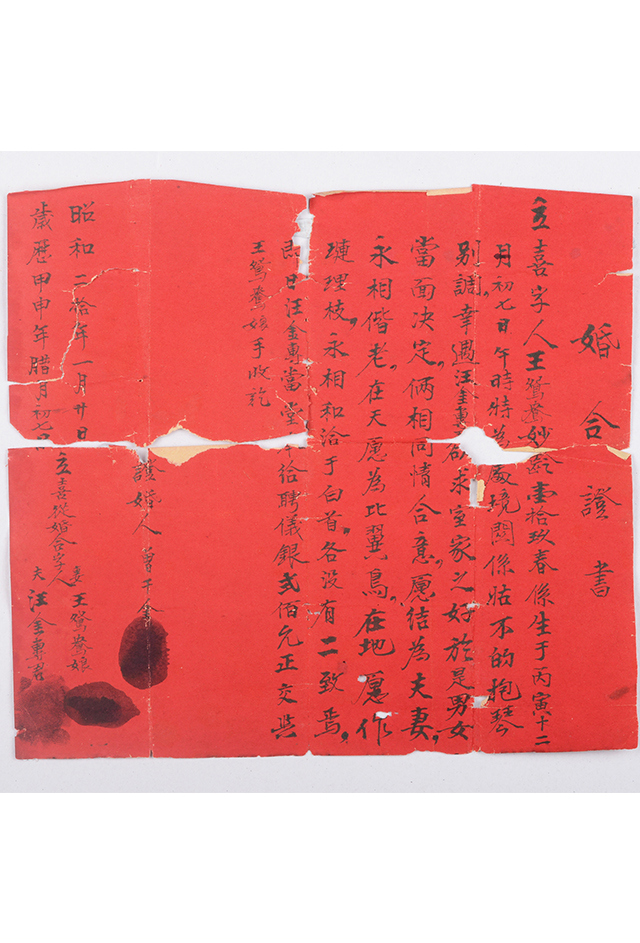 婚合證書
立喜字人王鴛鴦妙齡壹拾玖春係生于丙寅十二
月初七日午時時為處境関係怙不的抱琴
别調。幸遇汪金專欲求室家之好於是男女
當面决定。俩相同情合意。愿结為夫妻。
永相偕老。在天愿為比翼鳥。在地愿作
璉理枝。永相和洽于白首。各没有二致焉。
即日汪金專當堂 给聘儀銀弍佰元正交與
王鴛鴦娘手收訖
證婚人 曾千金
昭和二拾年一月廿日立喜從婚合字人 妻 王鴛鴦娘
歲曆甲申年腊月初七日 夫 汪金專